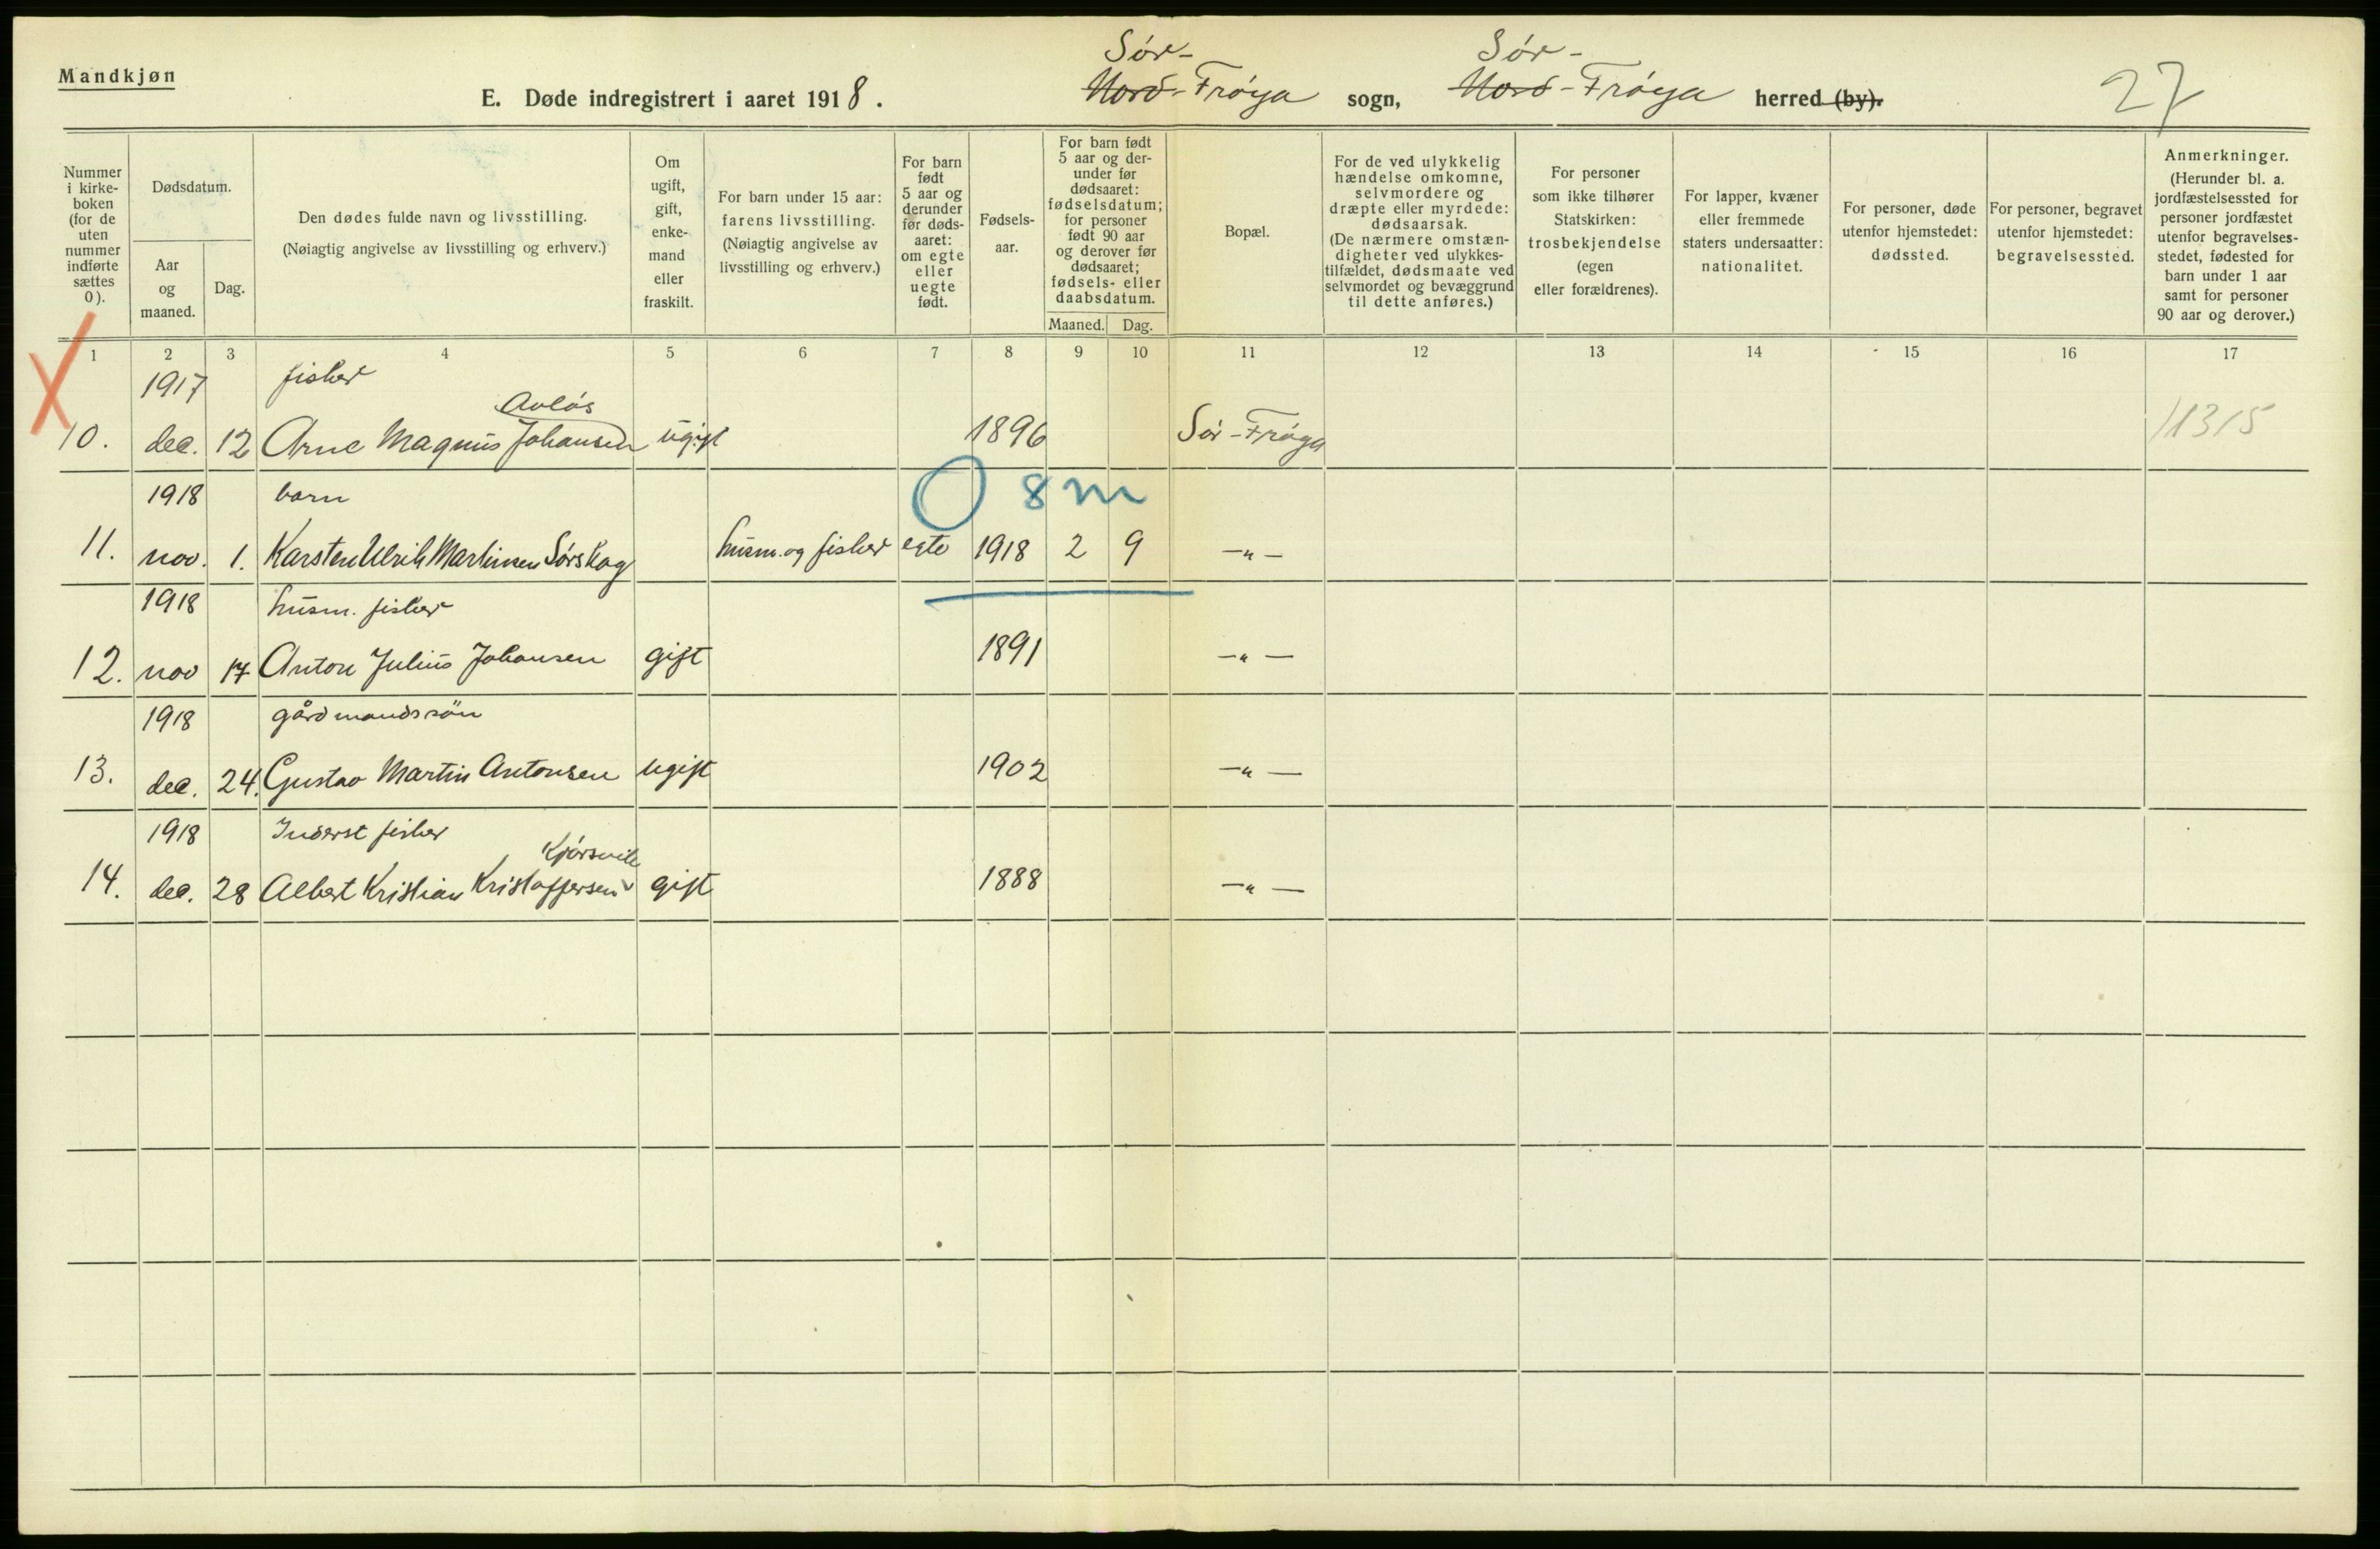 Mandkjøn
E. Døde indregistrert i aaret 1918.
Sør- Sør-
Nord-Frøya sogn, Nord-Frøya herred (by).
27
Nummer i kirkeboken (for de uten nummer indførte sættes 0).
Dødsdatum.
Aar og maaned.
Dag.
Den dødes fulde navn og livsstilling.
(Nøiagtig angivelse av livsstilling og erhverv.)
Om ugift, gift, enkemand eller fraskilt.
For barn under 15 aar: farens livsstilling.
(Nøiagtig angivelse av livsstilling og erhverv.)
For barn født 5 aar og derunder før dødsaaret: om egte eller uegte født.
Fødselsaar.
For barn født 5 aar og derunder før dødsaaret: fødselsdatum; for personer født 90 aar og derover før dødsaaret; fødsels- eller daabsdatum.
Maaned. Dag.
Bopæl.
For de ved ulykkelig hændelse omkomne, selvmordere og dræpte eller myrdede: dødsaarsak.
(De nærmere omstændigheter ved ulykkestilfældet, dødsmaate ved selvmordet og bevæggrund til dette anføres.)
For personer som ikke tilhører Statskirken: trosbekjendelse (egen eller forældrenes).
For lapper, kvæner eller fremmede staters undersaatter: nationalitet.
For personer, døde utenfor hjemstedet: dødssted.
For personer, begravet utenfor hjemstedet: begravelsessted.
Anmerkninger.
(Herunder bl. a. jordfæstelsessted for personer jordfæstet utenfor begravelsesstedet, fødested for barn under 1 aar samt for personer 90 aar og derover.)
1 2 3 4 5 6 7 8 9 10 11 12 13 14 15 16 17
X
1917 fisker
Avløs
10. dec. 12 Arne Magnus Johansen ugift 1896 Sør-Frøya 1315
1918 barn
O 8 m
11. nov. 1. Karsten Ulrik Martinsen Sørskag husm. og fisker egte 1918 2 9 —"—
1918 husm. fisker
12. nov 17 Anton Julius Johansen gift 1891 —"—
1918 gårdmandssön
13. dec. 24. Gustav Martin Antonsen ugift 1902 —"—
1918 Inderst fisker
Kjørsvik
14. dec. 28 Albert Kristian Kristoffersen gift 1888 —"—